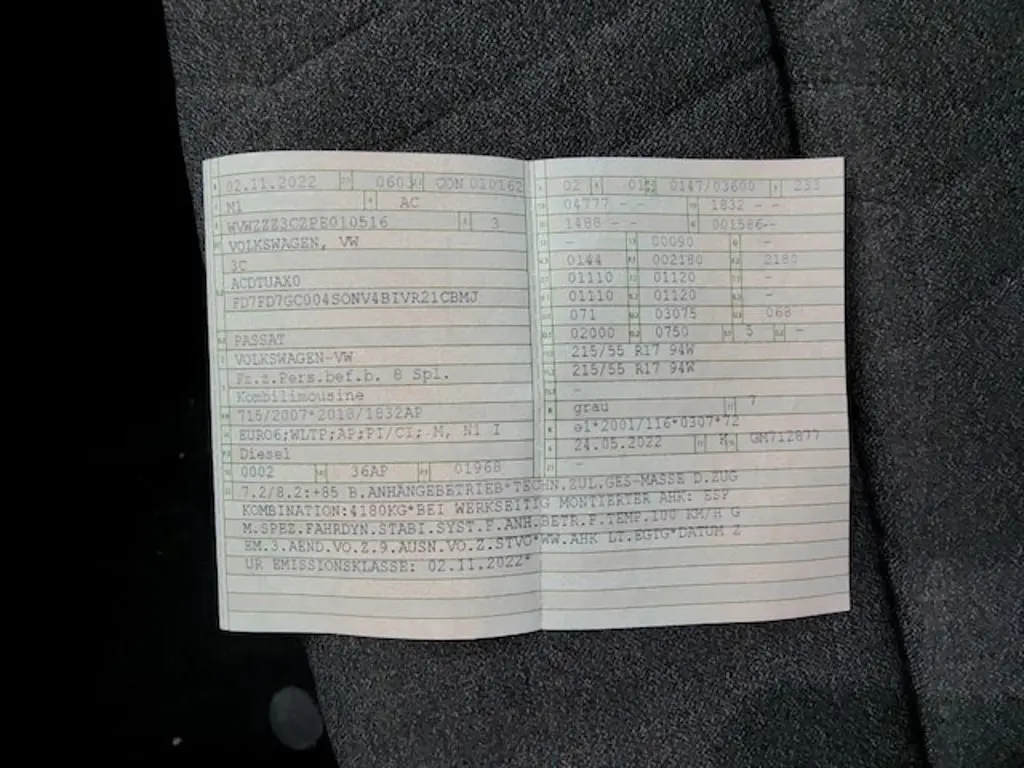 02.11.2022 0603 CDN 010162
M1 AC
WVWZZZ3CZPE010516 3
VOLKSWAGEN, VW
3C
ACDTUAX0
FD7FD7GC004SONV4BIVR21CBMJ
PASSAT
VOLKSWAGEN-VW
Fz.z.Pers.bef.b. 8 Spl.
Kombilimousine
715/2007*2018/1832AP
EURO6;WLTP;AP;PI/CI; M, N1 I
Diesel
0002 36AP 01968
02 01 0147/03600 233
04777 - - 1832 - -
1488 - - 001586--
- 00090 -
0144 002180 2180
01110 01120 -
01110 01120 -
071 03075 068
02000 0750 5 -
215/55 R17 94W
215/55 R17 94W
-
grau 7
e1*2001/116*0307*72
24.05.2022 K GM712877
-
7.2/8.2:+85 B.ANHÄNGEBETRIEB*TECHN.ZUL.GES-MASSE D.ZUG
KOMBINATION:4180KG*BEI WERKSEITIG MONTIERTER AHK: ESP
M.SPEZ.FAHRDYN.STABI.SYST.F.ANH.BETR.F.TEMP.100 KM/H G
EM.3.AEND.VO.Z.9.AUSN.VO.Z.STVO*WW.AHK LT.EGTG*DATUM Z
UR EMISSIONSKLASSE: 02.11.2022*